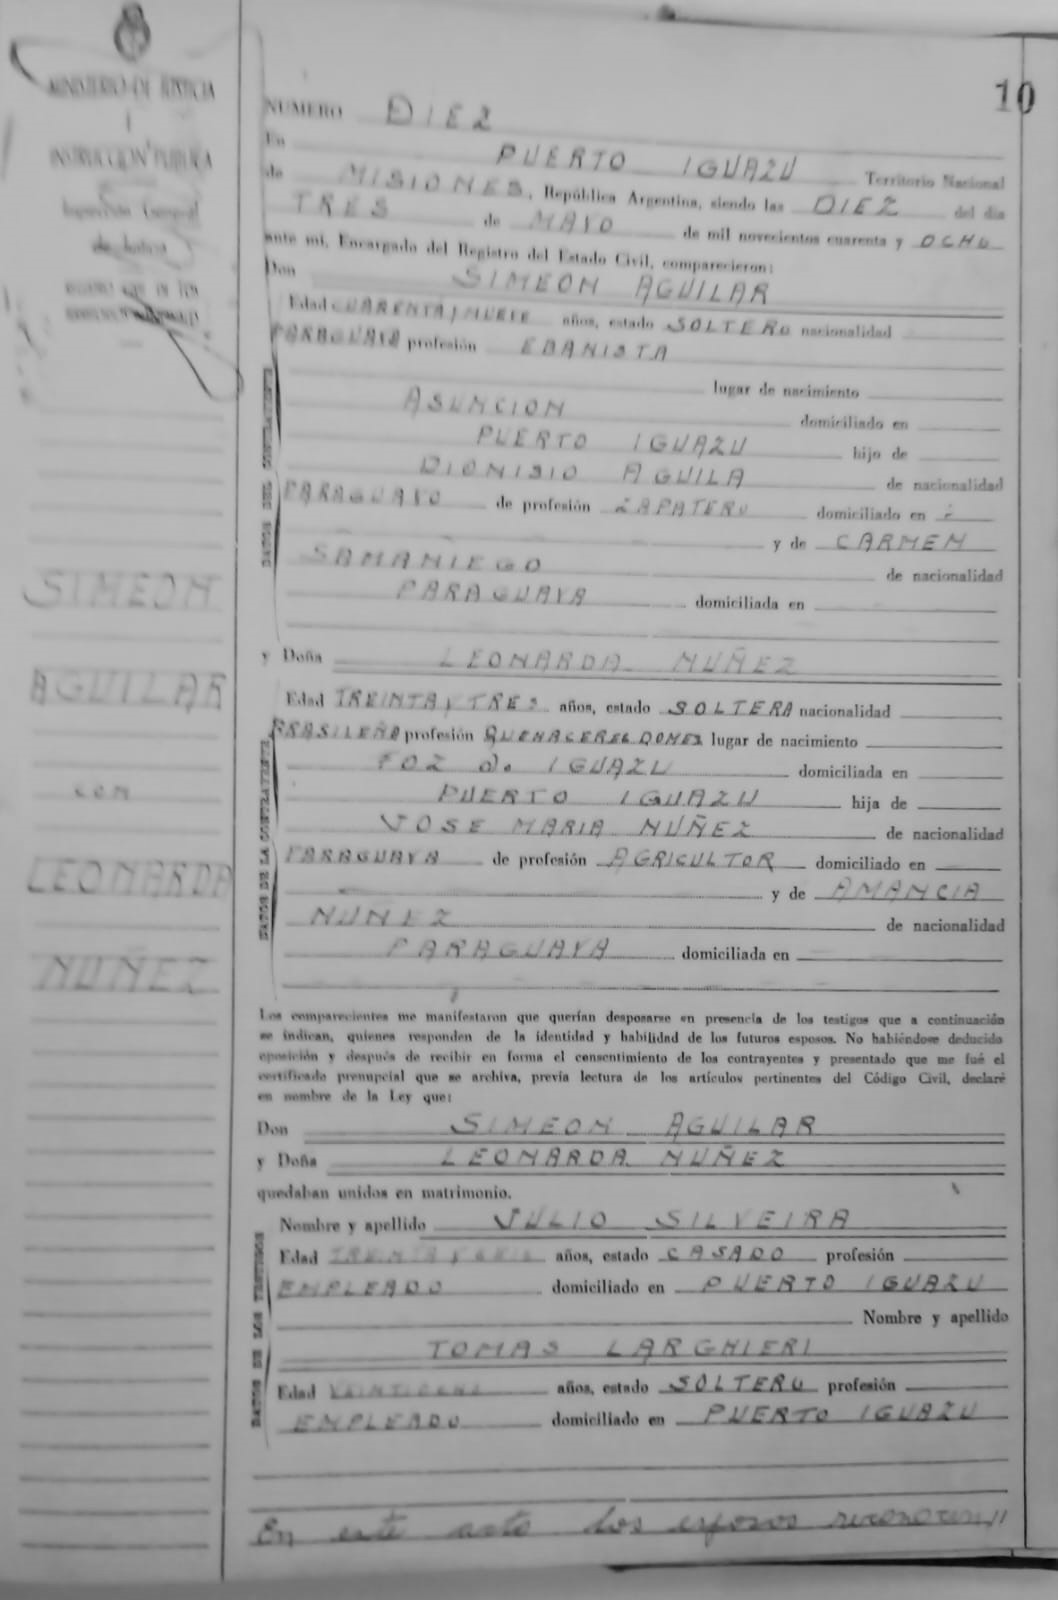 MINISTERIO DE JUSTICIA
E
INSTRUCCION PUBLICA
Inspección General
de Justicia
10
NUMERO DIEZ
En PUERTO IGUAZU Territorio Nacional
de MISIONES, República Argentina, siendo las DIEZ del día
TRES de MAYO de mil novecientos cuarenta y OCHO
ante mí, Encargado del Registro del Estado Civil, comparecieron:
Don SIMEON AGUILAR
Edad CUARENTA Y NUEVE años, estado SOLTERO nacionalidad
PARAGUAYA profesión EBANISTA
lugar de nacimiento
ASUNCION domiciliado en
PUERTO IGUAZU hijo de
DIONISIO AGUILA de nacionalidad
PARAGUAYO de profesión ZAPATERO domiciliado en
y de CARMEN
SAMANIEGO de nacionalidad
PARAGUAYA domiciliada en
DATOS DEL CONTRAYENTE
SIMEON
AGUILAR
CON
LEONARDA
NUÑEZ
y Doña LEONARDA NUÑEZ
Edad TREINTA Y TRES años, estado SOLTERA nacionalidad
BRASILEÑA profesión QUEHACERES DOMES lugar de nacimiento
FOZ do IGUAZU domiciliada en
PUERTO IGUAZU hija de
JOSE MARIA NUÑEZ de nacionalidad
PARAGUAYA de profesión AGRICULTOR domiciliado en
y de AMANCIA
NUÑEZ de nacionalidad
PARAGUAYA domiciliada en
DATOS DE LA CONTRAYENTE
Los comparecientes me manifestaron que querían desposarse en presencia de los testigos que a continuación
se indican, quienes responden de la identidad y habilidad de los futuros esposos. No habiéndose deducido
oposición y después de recibir en forma el consentimiento de los contrayentes y presentado que me fué el
certificado prenupcial que se archiva, previa lectura de los artículos pertinentes del Código Civil, declaré
en nombre de la Ley que:
Don SIMEON AGUILAR
y Doña LEONARDA NUÑEZ
quedaban unidos en matrimonio.
Nombre y apellido JULIO SILVEIRA
Edad TREINTA Y años, estado CASADO profesión
EMPLEADO domiciliado en PUERTO IGUAZU
Nombre y apellido
TOMAS LARGHIERI
Edad años, estado SOLTERO profesión
EMPLEADO domiciliado en PUERTO IGUAZU
DATOS DE LOS TESTIGOS
En este acto los esposos reconocen//